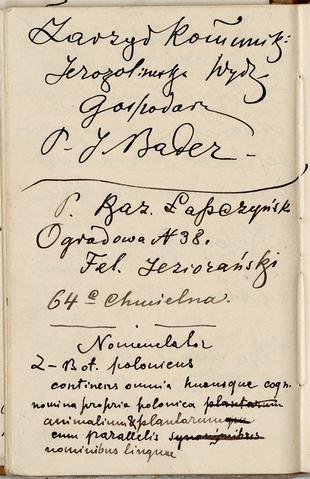 Zarząd Komunik:
Jerozolimska Wydz
Gospodarz
P. J Bader -
P. Kaz. Łapczyński
Ogrodowa N 38.
Fel. Jeziorański
64 c Chmielna.
Nomenclator
Z-Bot. polonicus
continens omnia hucusque cogn.
nomina propria polonica plantarum
animalium & plantarumque
cum parallelis synonymibus
nominibus linguae